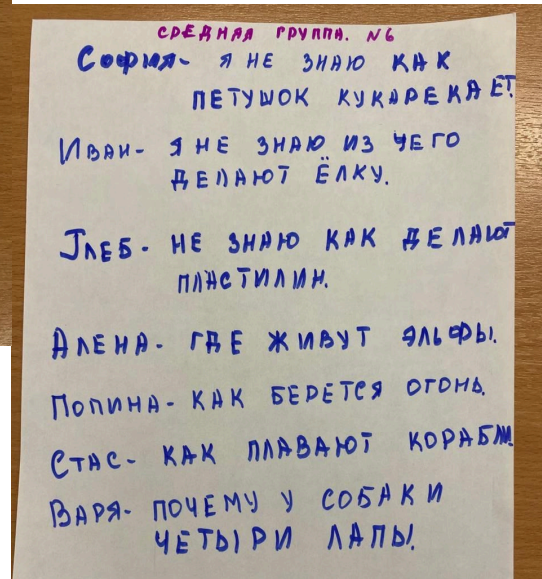 СРЕДНЯЯ ГРУППА. №6
СОФИЯ- Я НЕ ЗНАЮ КАК
ПЕТУШОК КУКАРЕКАЕТ.
ИВАН- Я НЕ ЗНАЮ ИЗ ЧЕГО
ДЕЛАЮТ ЁЛКУ.
ГЛЕБ- НЕ ЗНАЮ КАК ДЕЛАЮТ
ПЛАСТИЛИН.
АЛЕНА- ГДЕ ЖИВУТ ЭЛЬФЫ.
ПОЛИНА- КАК БЕРЕТСЯ ОГОНЬ.
СТАС- КАК ПЛАВАЮТ КОРАБЛИ.
ВАРЯ- ПОЧЕМУ У СОБАКИ
ЧЕТЫРИ ЛАПЫ.